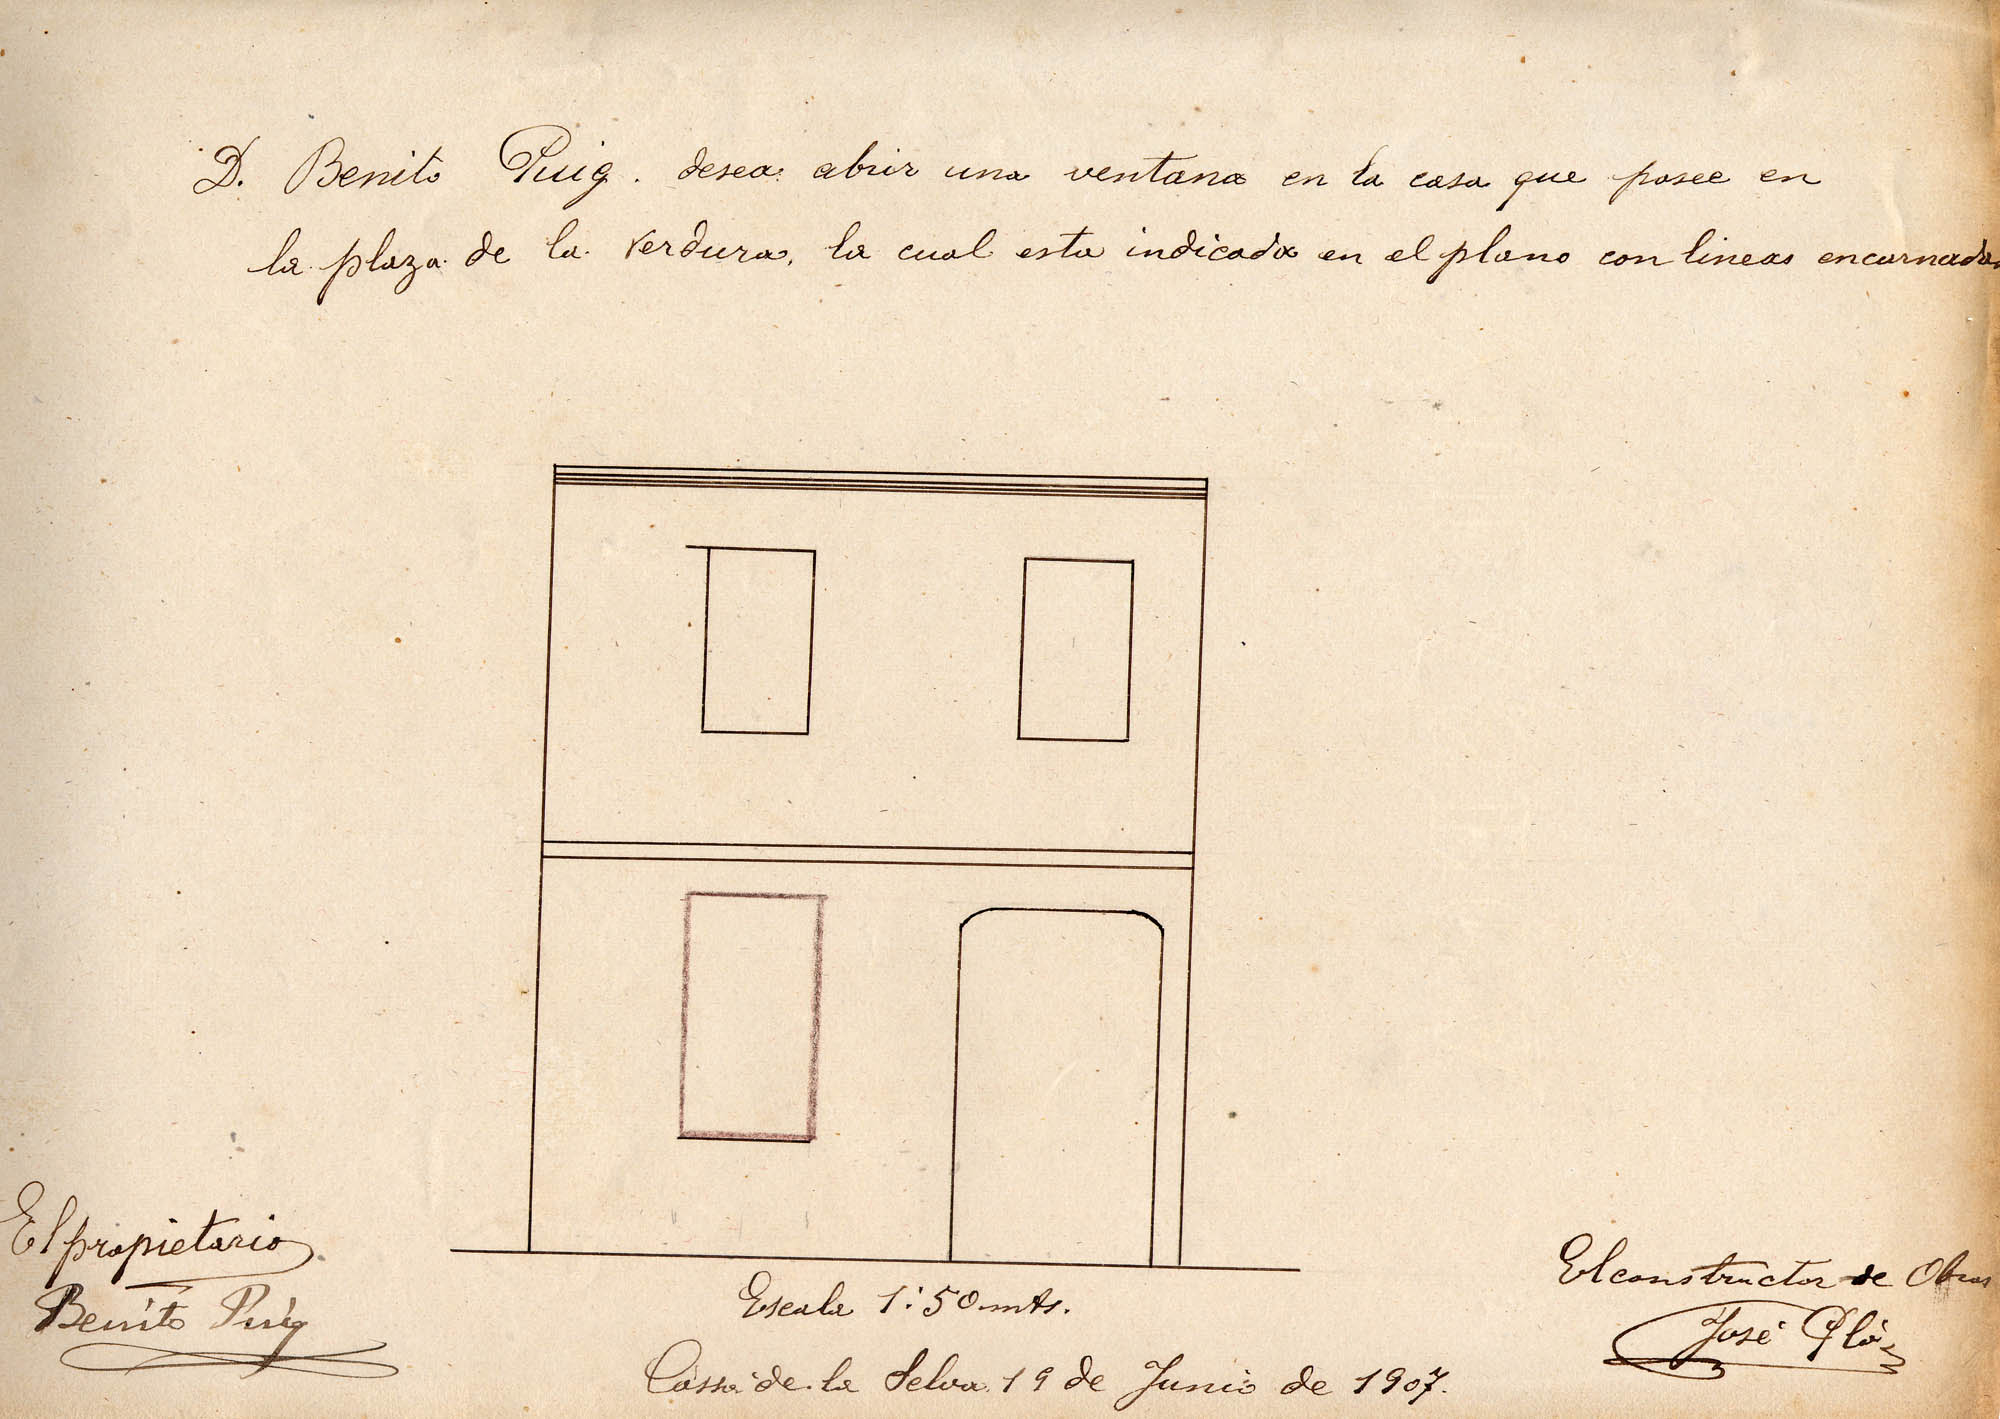 D. Benito Puig. desea abrir una ventana en la casa que posee en
la plaza de la Verdura, la cual esta indicada en el plano con lineas encarnadas
El propietario
Benito Puig
Escala 1:50 mts.
Cassá de la Selva 19 de Junio de 1907.
El constructor de Obras
José Plá